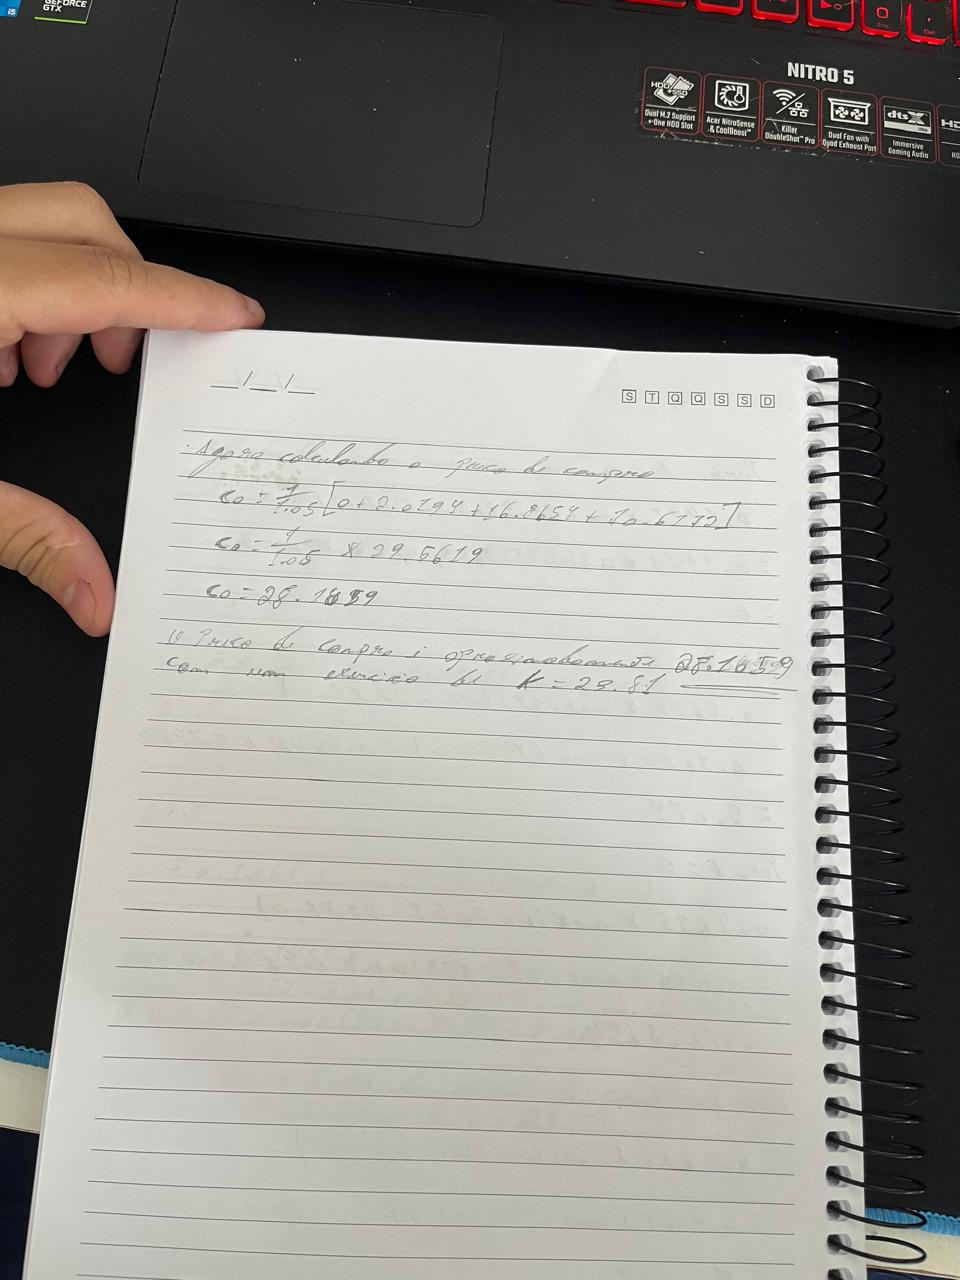 i5
GEFORCE
GTX
NITRO 5
HDD +SSD
Dual M.2 Support
+One HDD Slot
Acer NitroSense
& CoolBoost™
Killer
DoubleShot™ Pro
Dual Fan with
Quad Exhaust Port
dts X
Immersive
Gaming Audio
HD
__/__/__
S T Q Q S S D
Agora calculando o preço de compra
C0 = 1/1.05 [0 + 2.0194 + 16.8654 + 10.6772]
C0 = 1/1.05 x 29.5619
C0 = 28.1659
O Preço de compra é aproximadamente 28.1659
com um exercício de K = 23.81